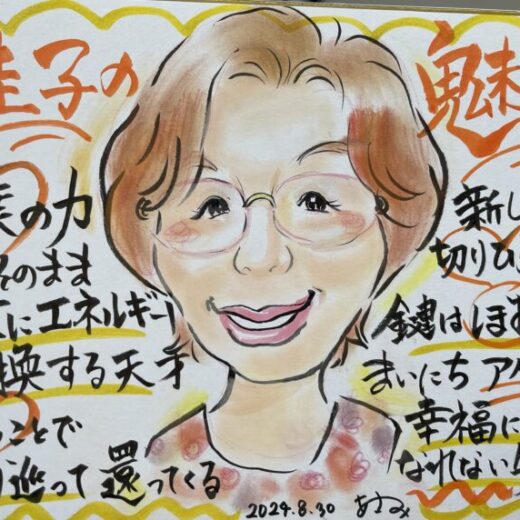 子の魅
の力
そのまま
にエネルギー
換する天才
ことで
巡って還ってくる
新し
切りひ
鍵はほ
まいにちア
幸福に
なれない
2024.8.30